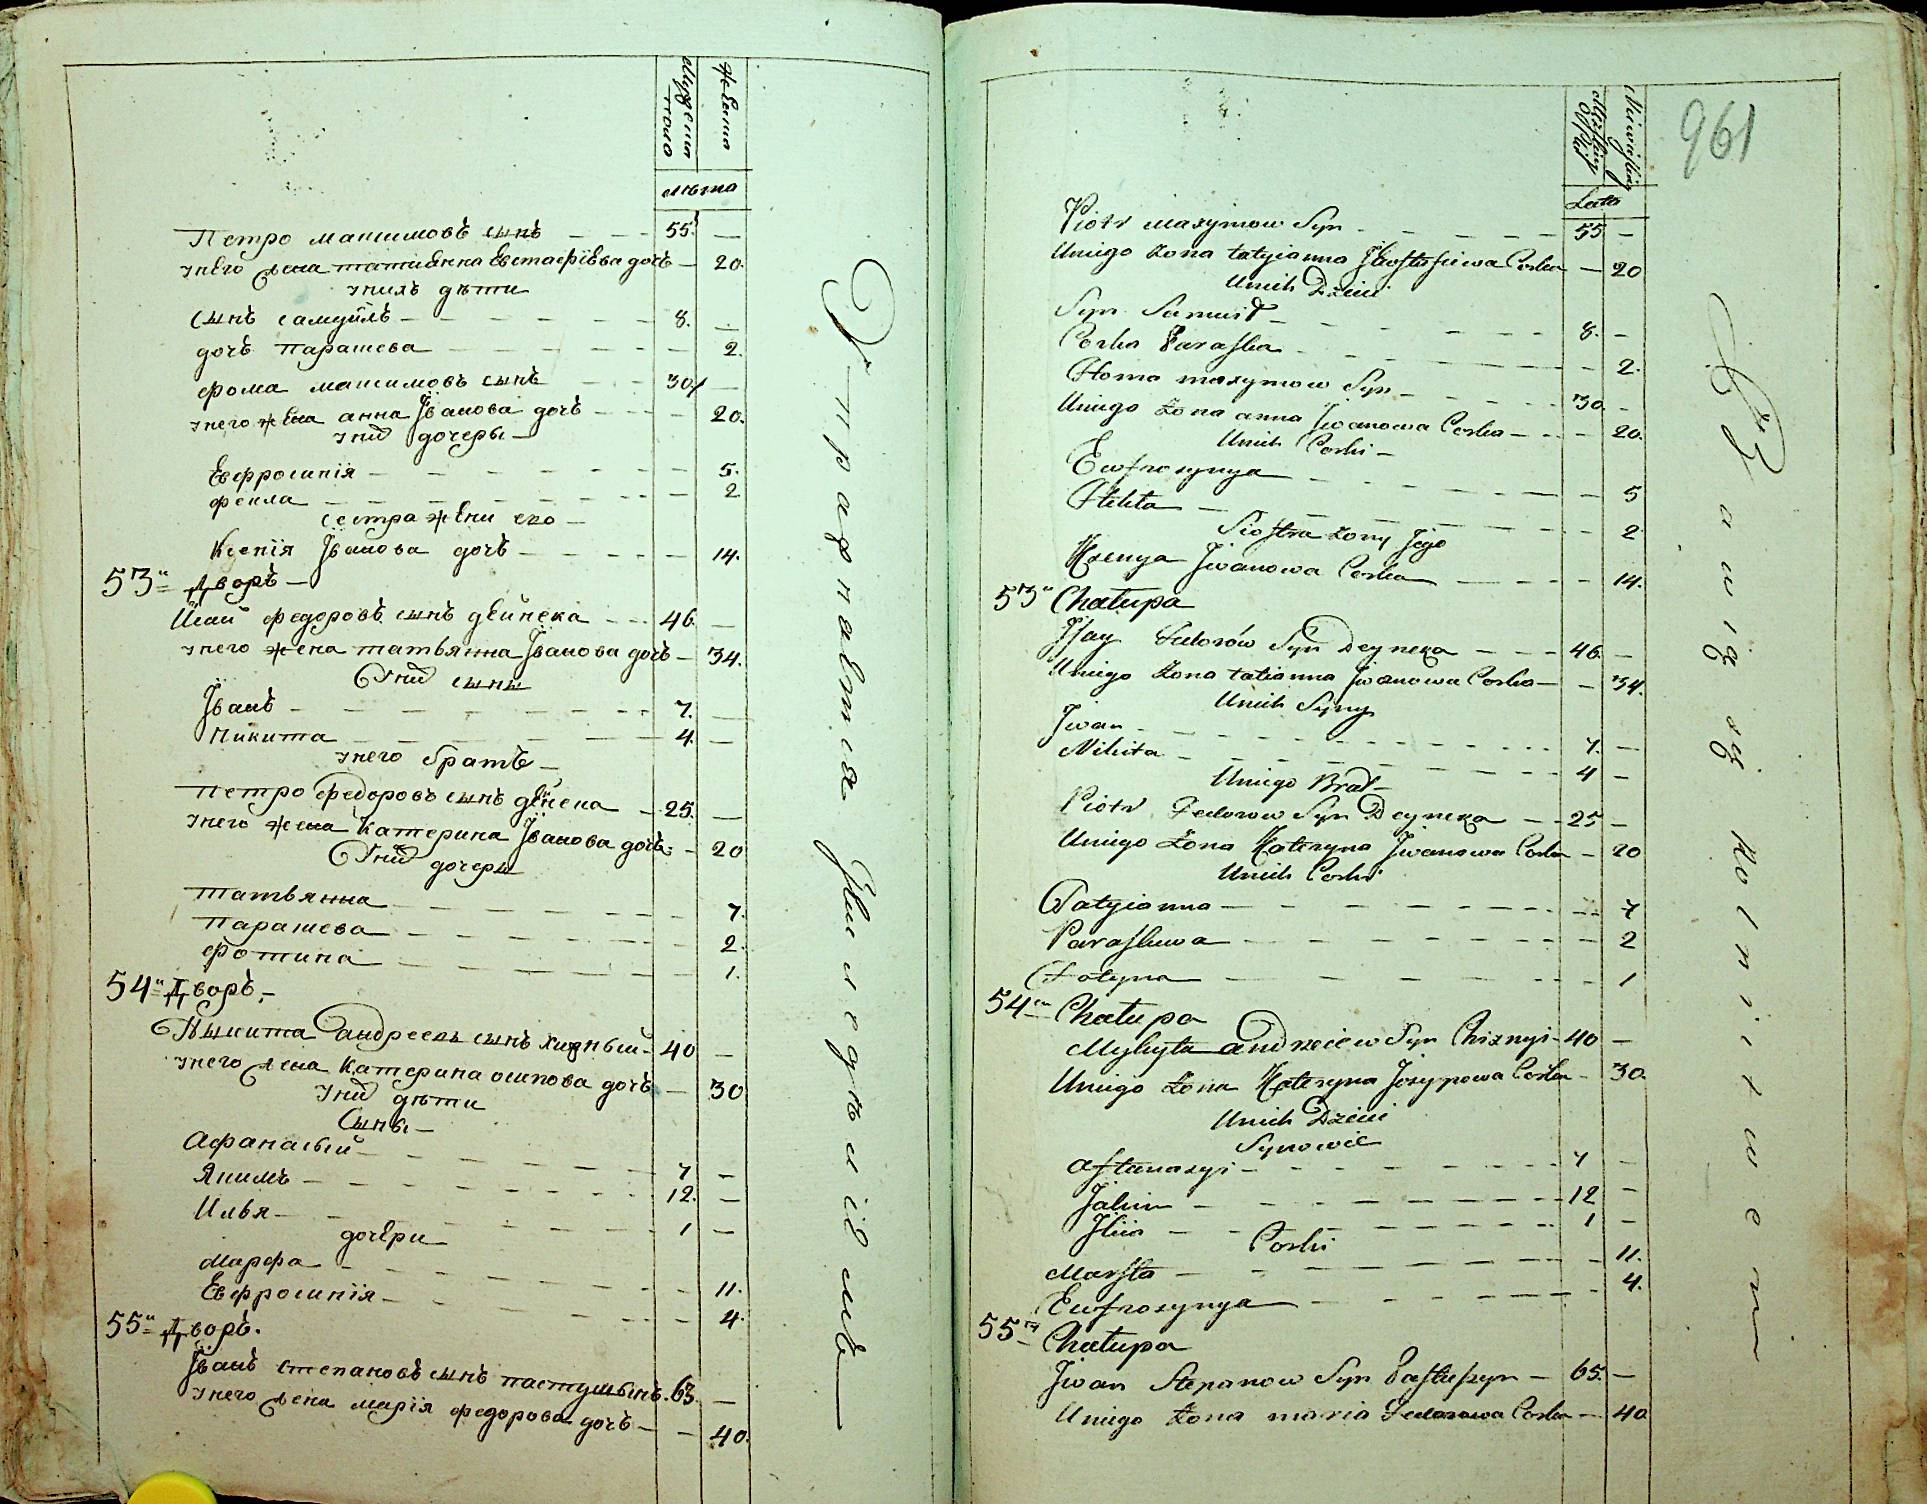 мужеска поло
женска
лѣта
Петро максимовъ сынъ — 55. —
унего жена татиянна Евстафіева дочъ — 20.
унихъ дѣти
сынъ самуйлъ — 8. —
дочъ Парасева — 2.
фома максимовъ сынъ — 30. —
унего жена анна Іванова дочъ — 20.
уних дочеры —
Евфросинія — 5.
фекла — 2
сестра жени его —
Ксенія Іванова дочъ — 14.
53й Дворъ —
Исай федоровъ сынъ дейнека — 46. —
унего жена татьянна Іванова дочъ — 34.
Уних сыны
Іванъ — 7. —
Никита — 4. —
унего братъ —
Петро федоровъ сынъ дейнека — 25. —
унего жена Катерина Іванова дочъ — 20
Уних дочеры
татьянна — 7.
Парасева — 2.
фотина — 1.
54й Дворъ. —
Мыкита андреевъ сынъ хижный — 40 —
унего жена Катерина осипова дочъ — 30
Уних дѣти
Сыны —
Афанасый — 7 —
Якимъ — 12. —
Илья — 1 —
дочери
Марфа — 11.
Евфросинія — 4.
55й Дворъ.
Іванъ степановъ сынъ пастушынъ. 63. —
унего жена марія федорова дочъ — 40.
961
Męzkiey Płci
Lata
Piotr maxymow Syn — 55 —
Uniego żona tatyianna Jewstafiewa Corka — 20
Unich Dzieci
Syn Samuił — 8. —
Corka Paraska — 2.
Homa maxymow Syn — 30. —
Uniego żona anna Jwanowa Corka — 20.
Unich Corki —
Eufrozynya — 5
Thekla — 2
Siostra żony Jego
Xenya Jwanowa Corka — 14.
53 Chałupa
Jsay Fedorów Syn Deyneka — 46. —
Uniego żona tatianna Jwanowa Corka — 34.
Unich Syny
Jwan — 7. —
Nikita — 4 —
Uniego Brat —
Piotr Fedorow Syn Deyneka — 25 —
Uniego żona Kateryna Jwanowa Corka — 20
Unich Corki
Tatyianna — 7
Paraskewa — 2
Fotyna — 1
54 Chałupa
Mykyta andrzeiew Syn Chiznyi — 40 —
Uniego żona Kateryna Jozypowa Corka — 30.
Unich Dzieci
Synowie
aftanazyi — 7 —
Jakim — 12 —
Jlia — 1 —
Corki
Marfta — 11.
Eufrozynya — 4.
55 Chałupa
Jwan Stepanow Syn Pastuszyn — 65. —
Uniego żona maria Fedorowa Corka — 40